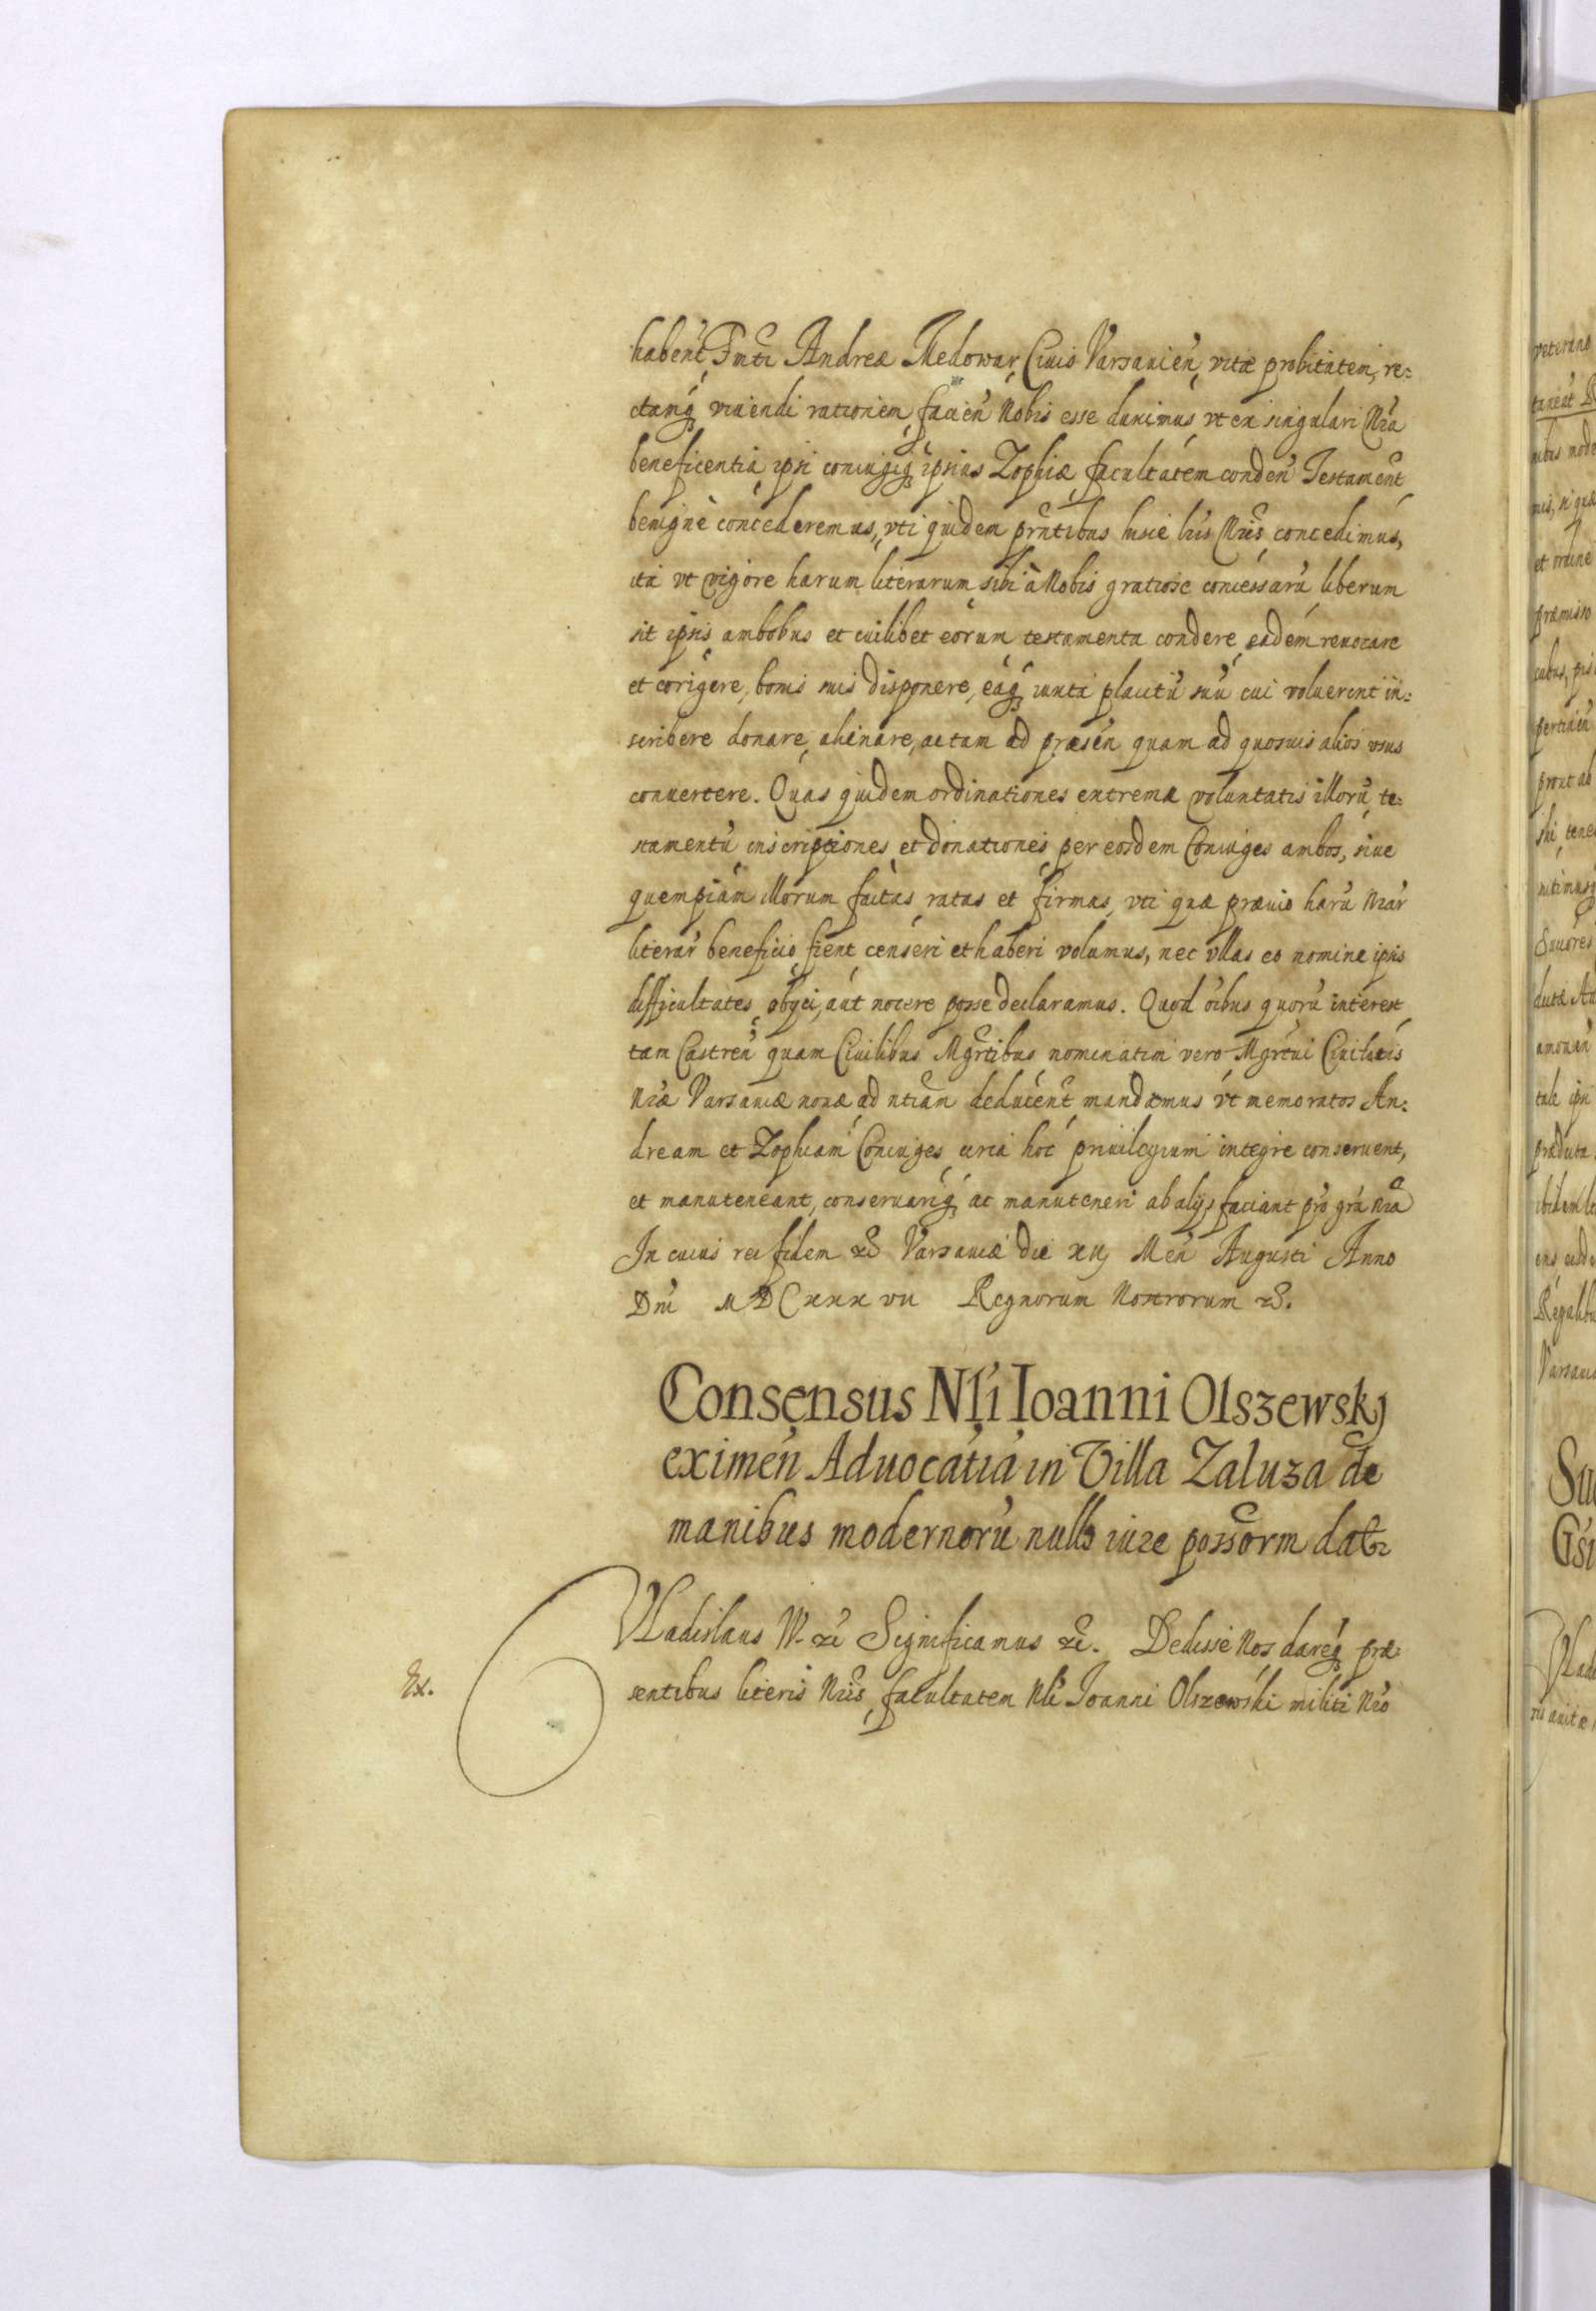 habent̃, Fmti Andreæ Medowar Ciuis Varsauien̄, vitæ probitatem, re=
ctamq; viuendi rationem facien̄ Nobis esse duximus vt ex singulari Nr̃a
beneficentia ipsi coniugiq; ipsius Zophiæ facultatem conden̄ Testament
benignè concederemus, vti quidem prñtibus hisce lr̃is Nr̃is concedimus,
ita vt vigore harum literarum sibi à Nobis gratiose concessarũ liberum
sit ipsis ambobus et cuilibet eorum testamenta condere eadem reuocare
et corigere, bonis suis disponere, eaq; iuxta placitũ suũ cui voluerint in=
scribere donare, alienare, ac tam ad præsen̄ quam ad quosuis alios vsus
conuertere. Quas quidem ordinationes extremæ voluntatis illorũ te=
stamentũ inscriptiones et donationes per eosdem Coniuges ambos, siue
quempiam illorum factas ratas et firmas, vti quæ præuio harũ Nr̃ar
literar̃ beneficio fient censeri et haberi volumus, nec vllas eo nomine ipsis
difficultates obijci, aut nocere posse declaramus. Quod õibus quorũ interest
tam Castren̄ quam Ciuilibus Mgr̃tibus nominatim vero Mgr̃tui Ciuitatis
Nr̃æ Varsauiæ nouæ ad ntiam deducent̃ mandamus vt memoratos An=
dream et Zophiam Coniuges circa hoc priuilegium integre conseruent,
et manuteneant, conseruariq; ac manuteneri ab alijs faciant pro gr̃a Nr̃a
In cuius rei fidem &c Varsauiæ die xij Men̄ Augusti Anno
Dni MDCxxxvii Regnorum Nostrorum &c.
Consensus Nl̃i Ioanni Olszewskj
eximen̄ Aduocatia in Villa Zaluza de
manibus modernorũ nullo iure possorm dat̃
Vladislaus IV &c Significamus &c. Dedisse Nos dareq; præ=
sentibus literis Nr̃is facultatem Nl̃i Ioanni Olszewski militi Nr̃o
Ex.